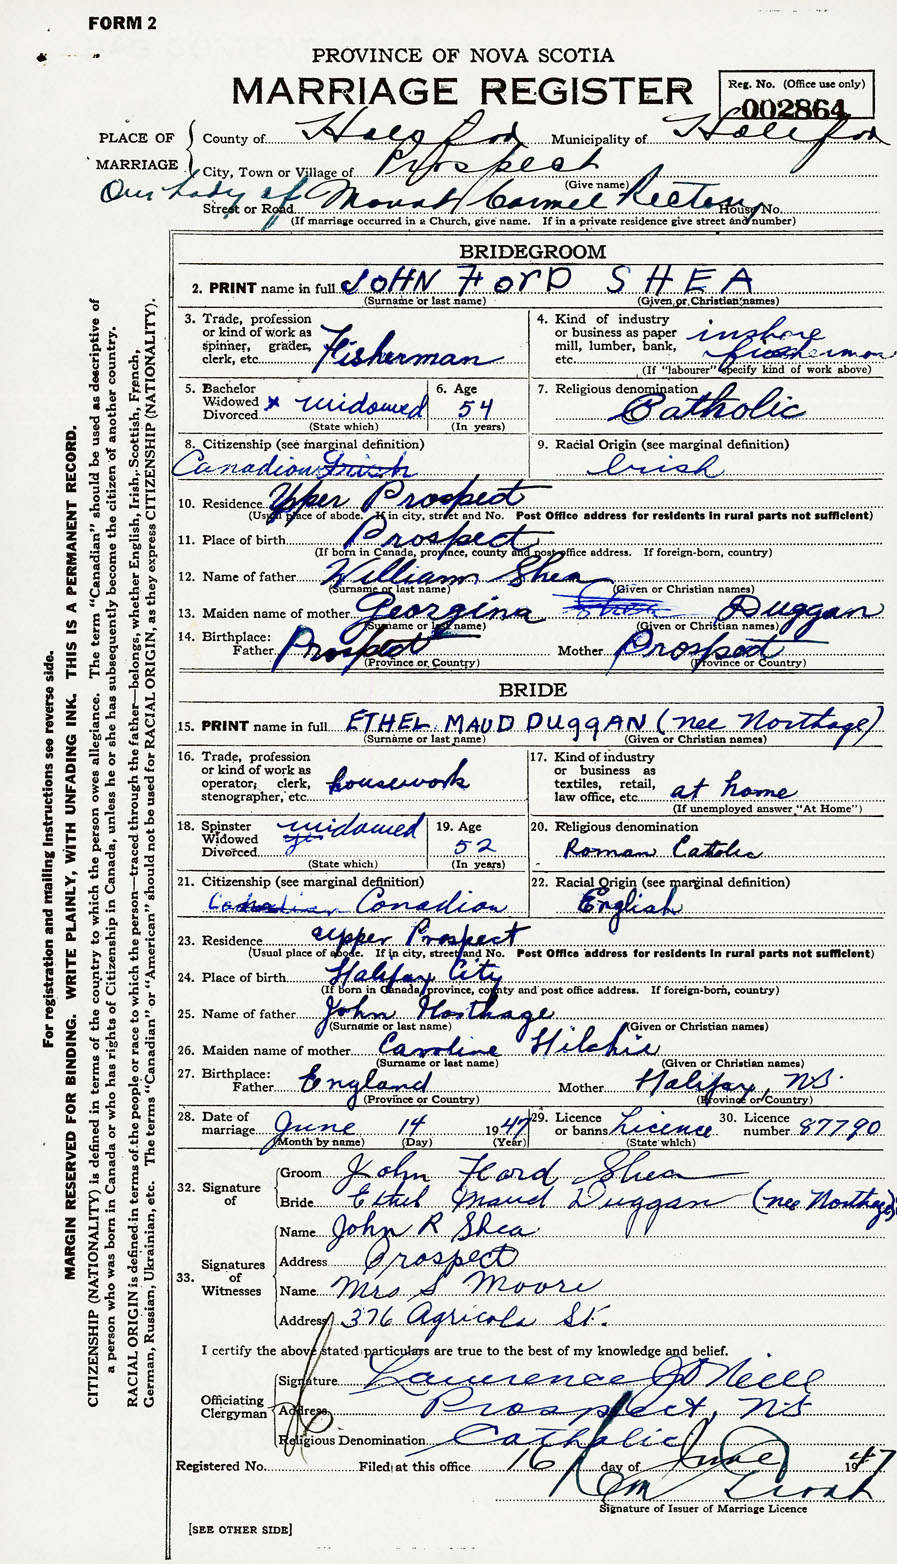 FORM 2
PROVINCE OF NOVA SCOTIA
MARRIAGE REGISTER
Reg. No. (Office use only)
002864
PLACE OF MARRIAGE
County of Halifax Municipality of Halifax
City, Town or Village of Prospect
(Give name)
Our Lady of Mount Carmel Rectory
Street or Road House No.
(If marriage occurred in a Church, give name. If in a private residence give street and number)
BRIDEGROOM
2. PRINT name in full JOHN FORD SHEA
(Surname or last name) (Given or Christian names)
3. Trade, profession or kind of work as spinner, grader, clerk, etc. Fisherman
4. Kind of industry or business as paper mill, lumber, bank, etc. inshore fisherman
(If "labourer" specify kind of work above)
5. Bachelor Widowed Divorced x widowed
(State which)
6. Age 54
(In years)
7. Religious denomination Catholic
8. Citizenship (see marginal definition)
Canadian Irish
9. Racial Origin (see marginal definition)
Irish
10. Residence Upper Prospect
(Usual place of abode. If in city, street and No. Post Office address for residents in rural parts not sufficient)
11. Place of birth Prospect
(If born in Canada, province, county and post office address. If foreign-born, country)
12. Name of father William Shea
(Surname or last name) (Given or Christian names)
13. Maiden name of mother Georgina Shea Duggan
(Surname or last name) (Given or Christian names)
14. Birthplace: Father Prospect Mother Prospect
(Province or Country) (Province or Country)
BRIDE
15. PRINT name in full ETHEL MAUD DUGGAN (nee Northage)
(Surname or last name) (Given or Christian names)
16. Trade, profession or kind of work as operator, clerk, stenographer, etc. housework
17. Kind of industry or business as textiles, retail, law office, etc. at home
(If unemployed answer "At Home")
18. Spinster Widowed Divorced widowed
(State which)
19. Age 52
(In years)
20. Religious denomination
Roman Catholic
21. Citizenship (see marginal definition)
Canadian Canadian
22. Racial Origin (see marginal definition)
English
23. Residence Upper Prospect
(Usual place of abode. If in city, street and No. Post Office address for residents in rural parts not sufficient)
24. Place of birth Halifax City
(If born in Canada, province, county and post office address. If foreign-born, country)
25. Name of father John Northage
(Surname or last name) (Given or Christian names)
26. Maiden name of mother Caroline Hilchie
(Surname or last name) (Given or Christian names)
27. Birthplace: Father England Mother Halifax, N.S.
(Province or Country) (Province or Country)
28. Date of marriage June 14 1947
(Month by name) (Day) (Year)
29. Licence or banns Licence
(State which)
30. Licence number 87790
32. Signature of
Groom John Ford Shea
Bride Ethel Maud Duggan (nee Northage)
33. Signatures of Witnesses
Name John R Shea
Address Prospect
Name Mrs S Moore
Address 376 Agricola St.
I certify the above stated particulars are true to the best of my knowledge and belief.
Officiating Clergyman
Signature Lawrence J O'Neill
Address Prospect, N.S
Religious Denomination Catholic
Registered No. Filed at this office 16 day of June 1947
Signature of Issuer of Marriage Licence
[SEE OTHER SIDE]
For registration and mailing instructions see reverse side.
MARGIN RESERVED FOR BINDING. WRITE PLAINLY, WITH UNFADING INK. THIS IS A PERMANENT RECORD.
CITIZENSHIP (NATIONALITY) is defined in terms of the country to which the person owes allegiance. The term "Canadian" should be used as descriptive of
a person who was born in Canada or who has rights of Citizenship in Canada, unless he or she has subsequently become the citizen of another country.
RACIAL ORIGIN is defined in terms of the people or race to which the person—traced through the father—belongs, whether English, Irish, Scottish, French,
German, Russian, Ukrainian, etc. The terms "Canadian" or "American" should not be used for RACIAL ORIGIN, as they express CITIZENSHIP (NATIONALITY).